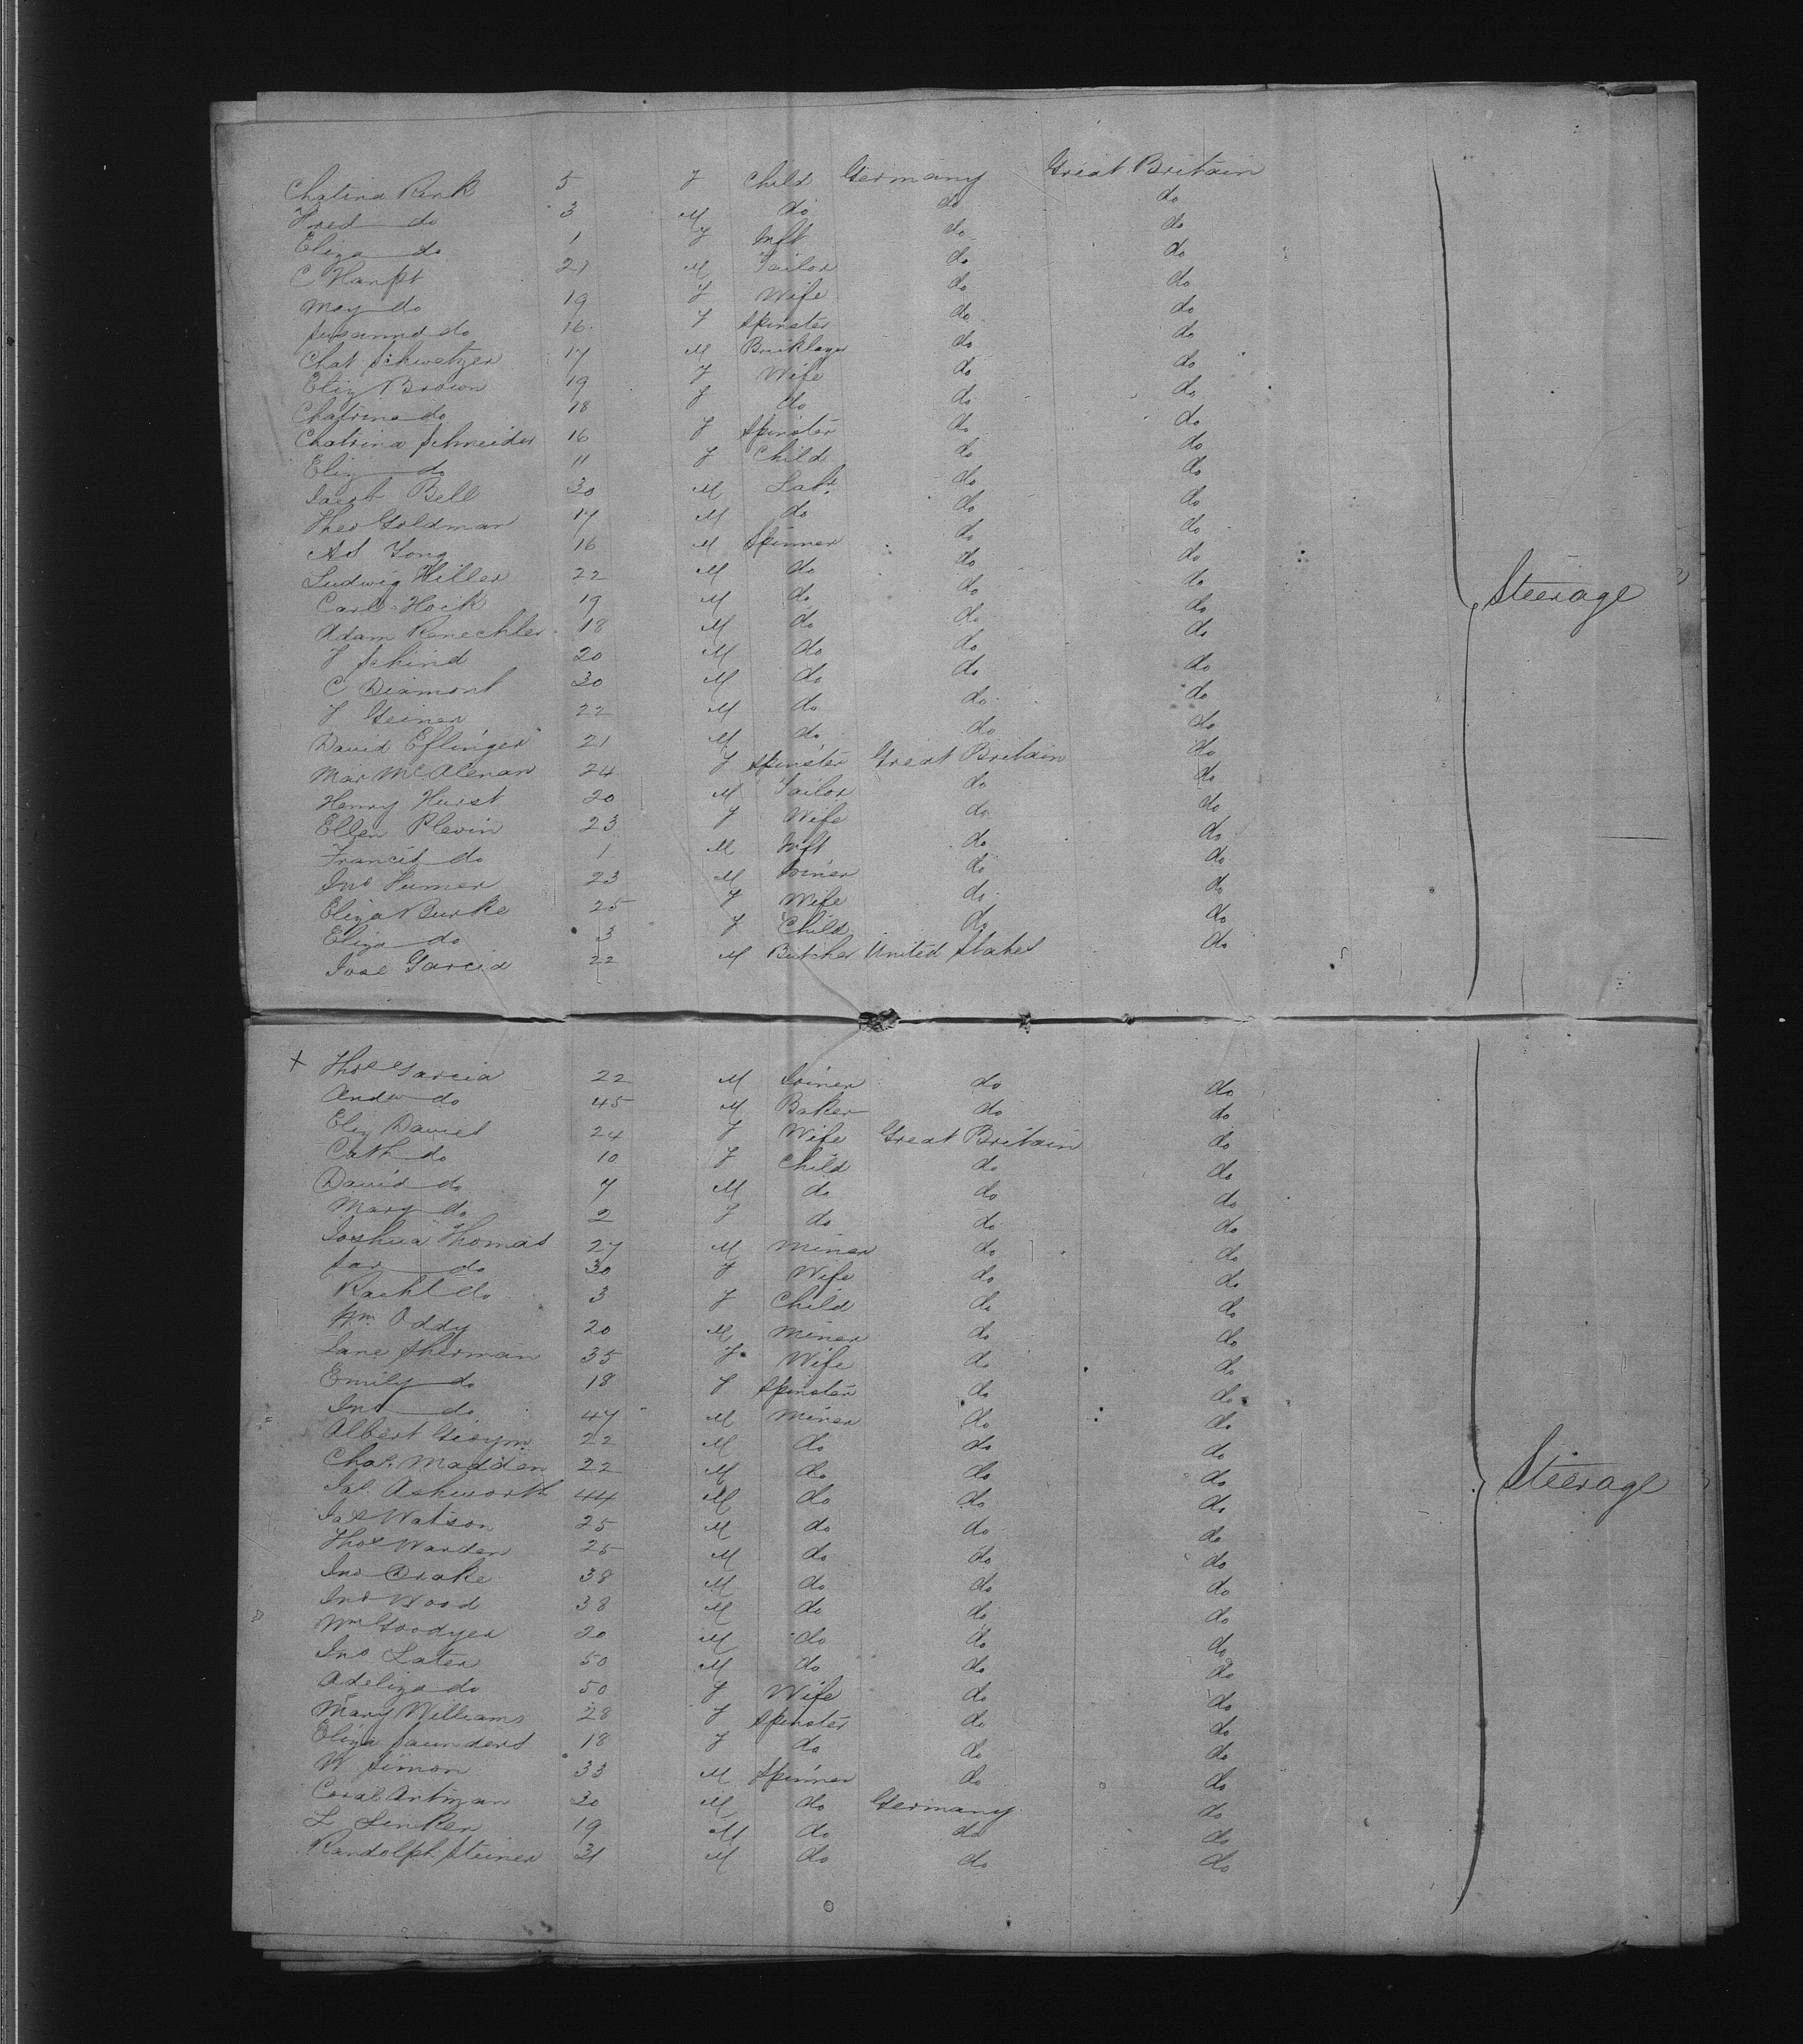 Chatina Rink 5 F Child Germany Great Britain
Fred do 3 M do do do
Eliza do 1 F Inft do do
C Hanft 21 M Tailor do do
May do 19 F Wife do do
Susanna do 16 F Spinster do do
Chat Schwetzer 17 M Bricklayer do do
Eliz Brown 19 F Wife do do
Chatrina do 18 F do do do
Chatrina Schneider 16 F Spinster do do
Eliz do 11 F Child do do
Jacob Bell 30 M Labr. do do
Theo Goldman 17 M do do do
Ad Yong 16 M Spinner do do
Ludwig Hiller 22 M do do do
Carl Hock 19 M do do do
Adam Renechler 18 M do do do
F Schind 20 M do do do
C Diamont 30 M do do do
F Geiner 22 M do do do
David Eflinger 21 M do do do
Mar McAlenan 24 F Spinster Great Britain do
Henry Hurst 20 M Tailor do do
Ellen Plevin 23 F Wife do do
Francis do 1 M Inft do do
Jno Humer 23 M Joiner do do
Eliza Burke 25 F Wife do do
Eliza do 3 F Child do do
Jose Garcia 22 M Butcher United States do
Steerage
+ Thos Garcia 22 M Joiner do do
Andw do 45 M Baker do do
Eliz Davies 24 F Wife Great Britain do
Cath do 10 F Child do do
David do 7 M do do do
Mary do 2 F do do do
Joshua Thomas 27 M Miner do do
Sar do 30 F Wife do do
Rachl do 3 F Child do do
Wm Oddy 20 M Miner do do
Jane Sherman 35 F Wife do do
Emily do 18 F Spinster do do
Jno do 47 M Miner do do
Albert 22 M do do do
Chas. Madden 22 M do do do
Jas. Ashworth 44 M do do do
Jas Watson 25 M do do do
Thos Warden 25 M do do do
Jno Drake 38 M do do do
Jno Wood 38 M do do do
Wm Goodyer 20 M do do do
Jno Later 50 M do do do
Adeliza do 50 F Wife do do
Mary Williams 28 F Spinster do do
Eliza Saunders 18 F do do do
W Simon 33 M Spinner do do
Coral Antman 30 M do Germany do
L Linker 19 M do do do
Randolph Steiner 31 M do do do
Steerage